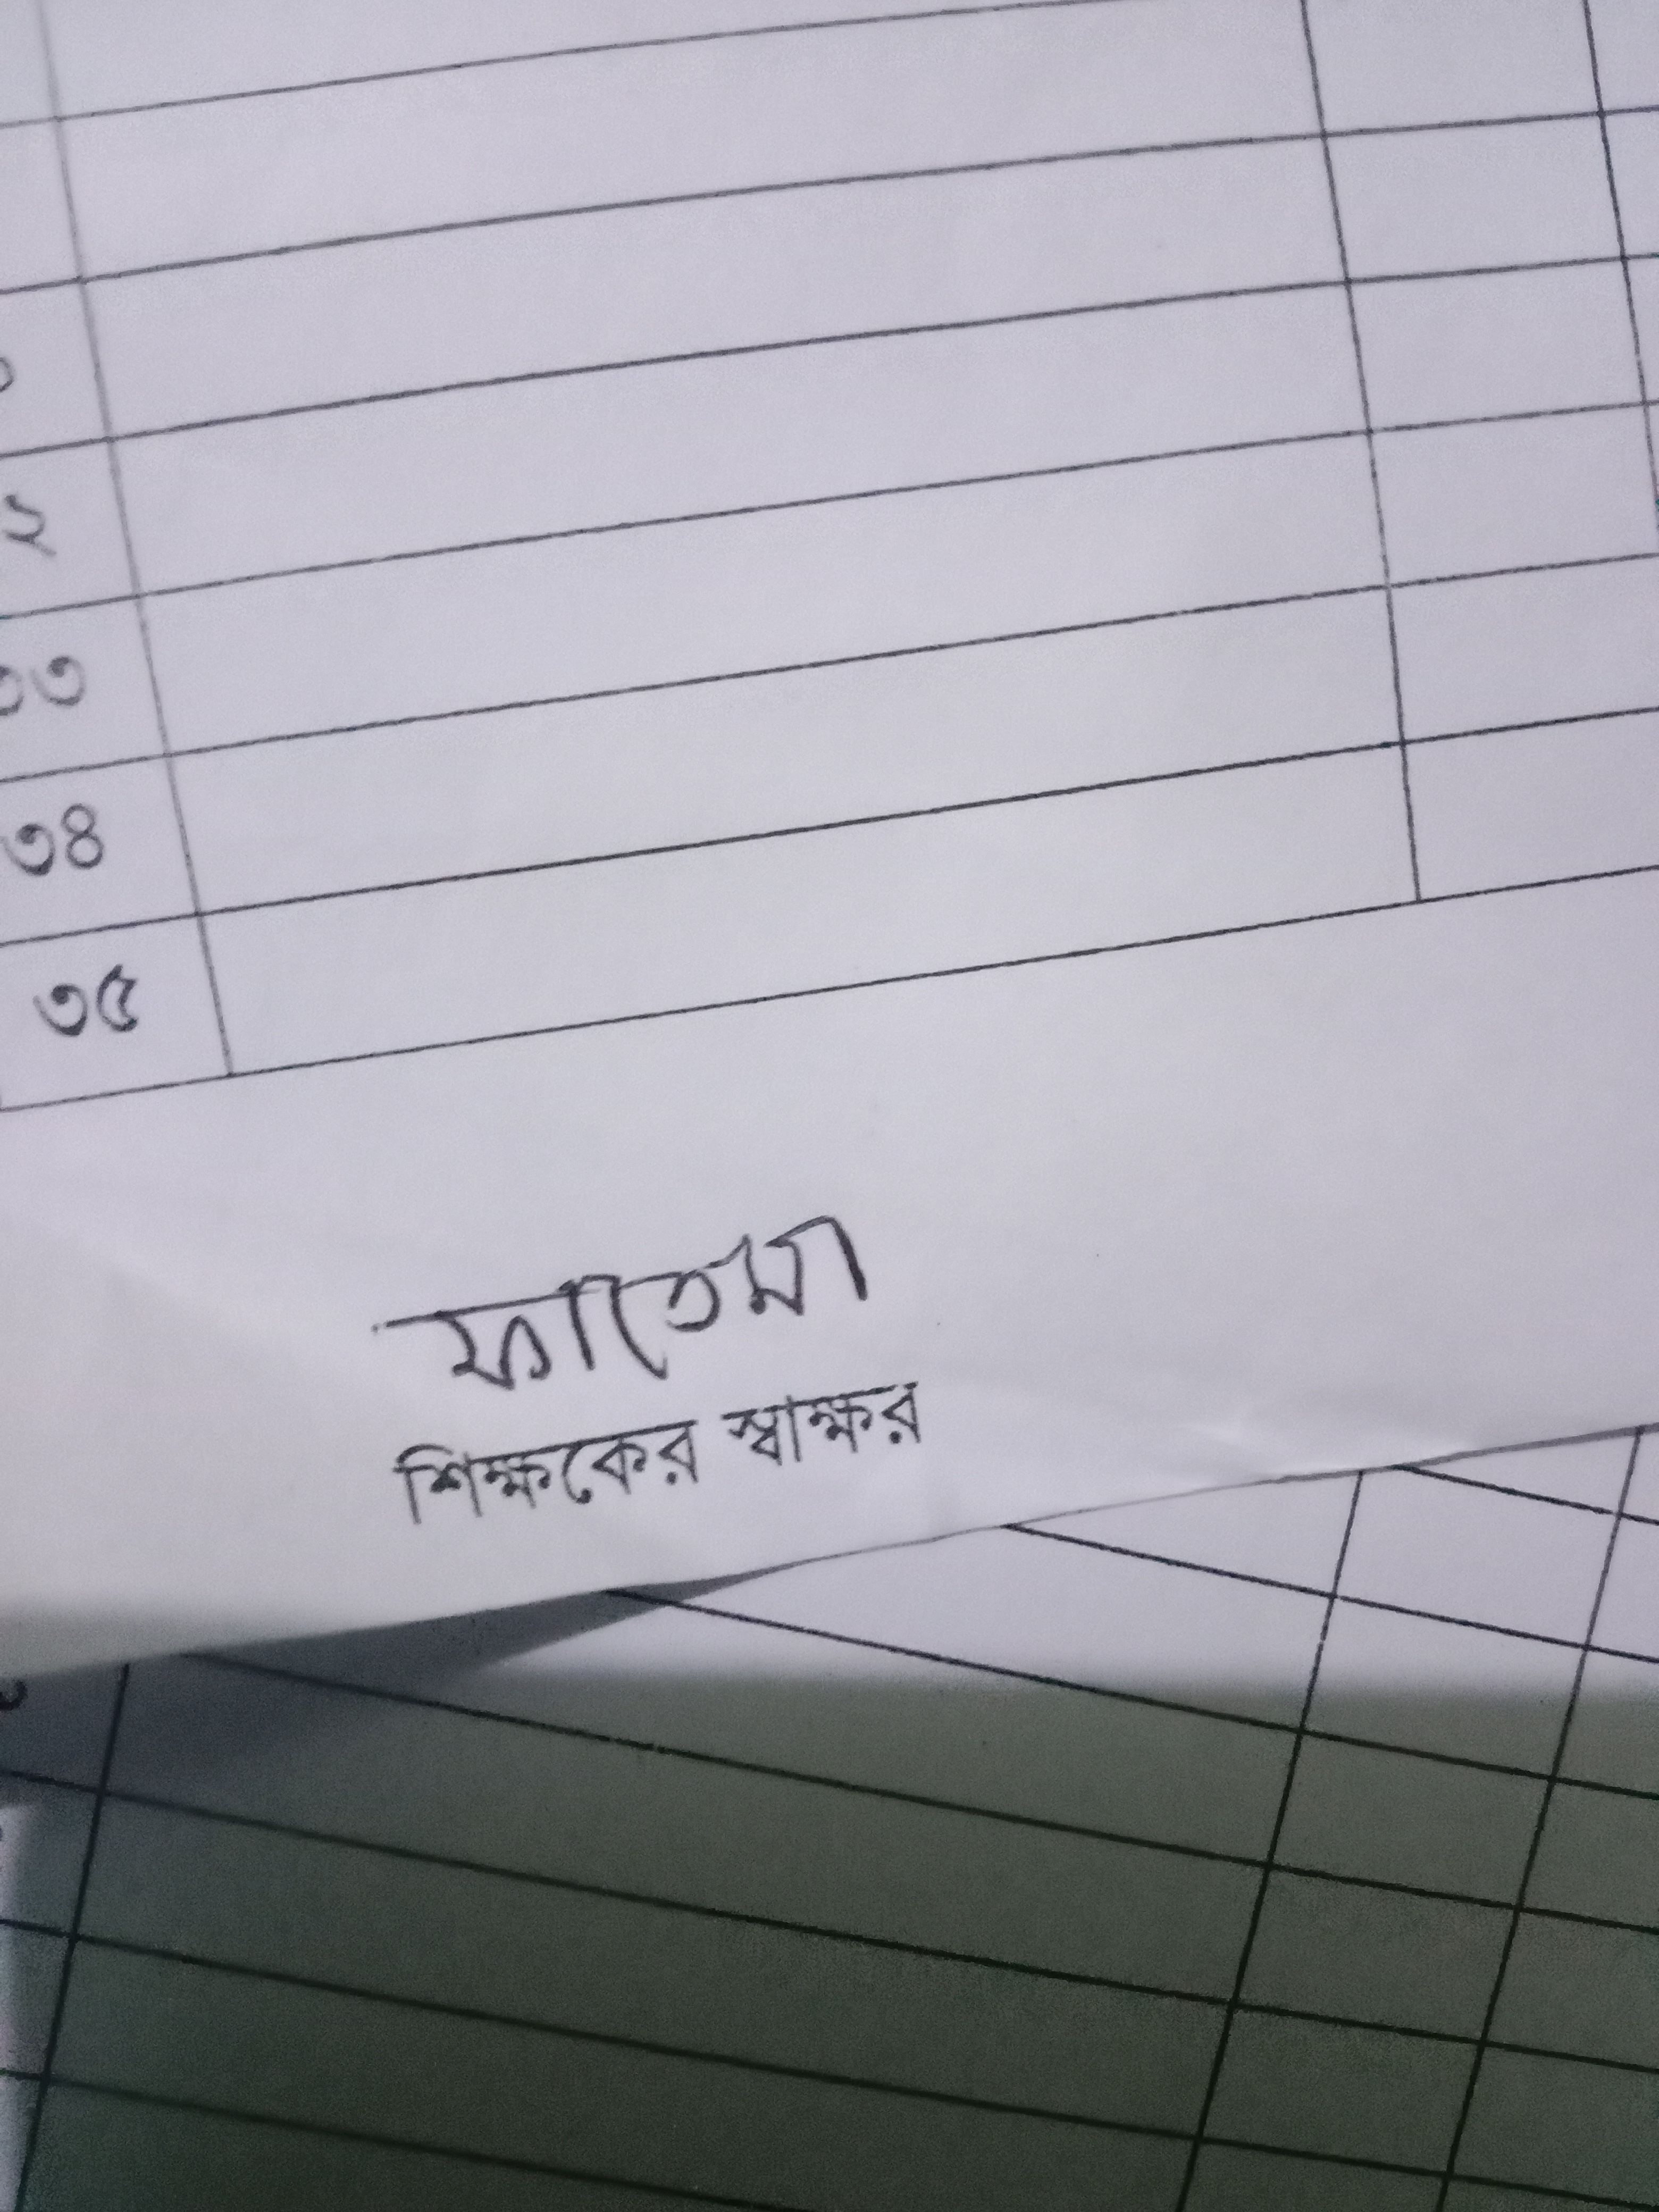 ৩৩
৩৪
৩৫
ফাতেমা
শিক্ষকের স্বাক্ষর